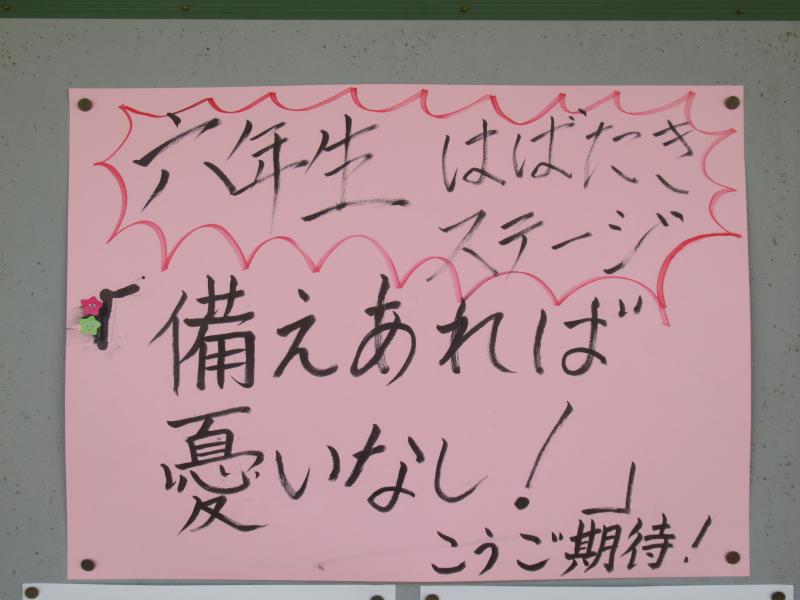 六年生 はばたき
ステージ
「備えあれば
憂いなし!」
こうご期待!